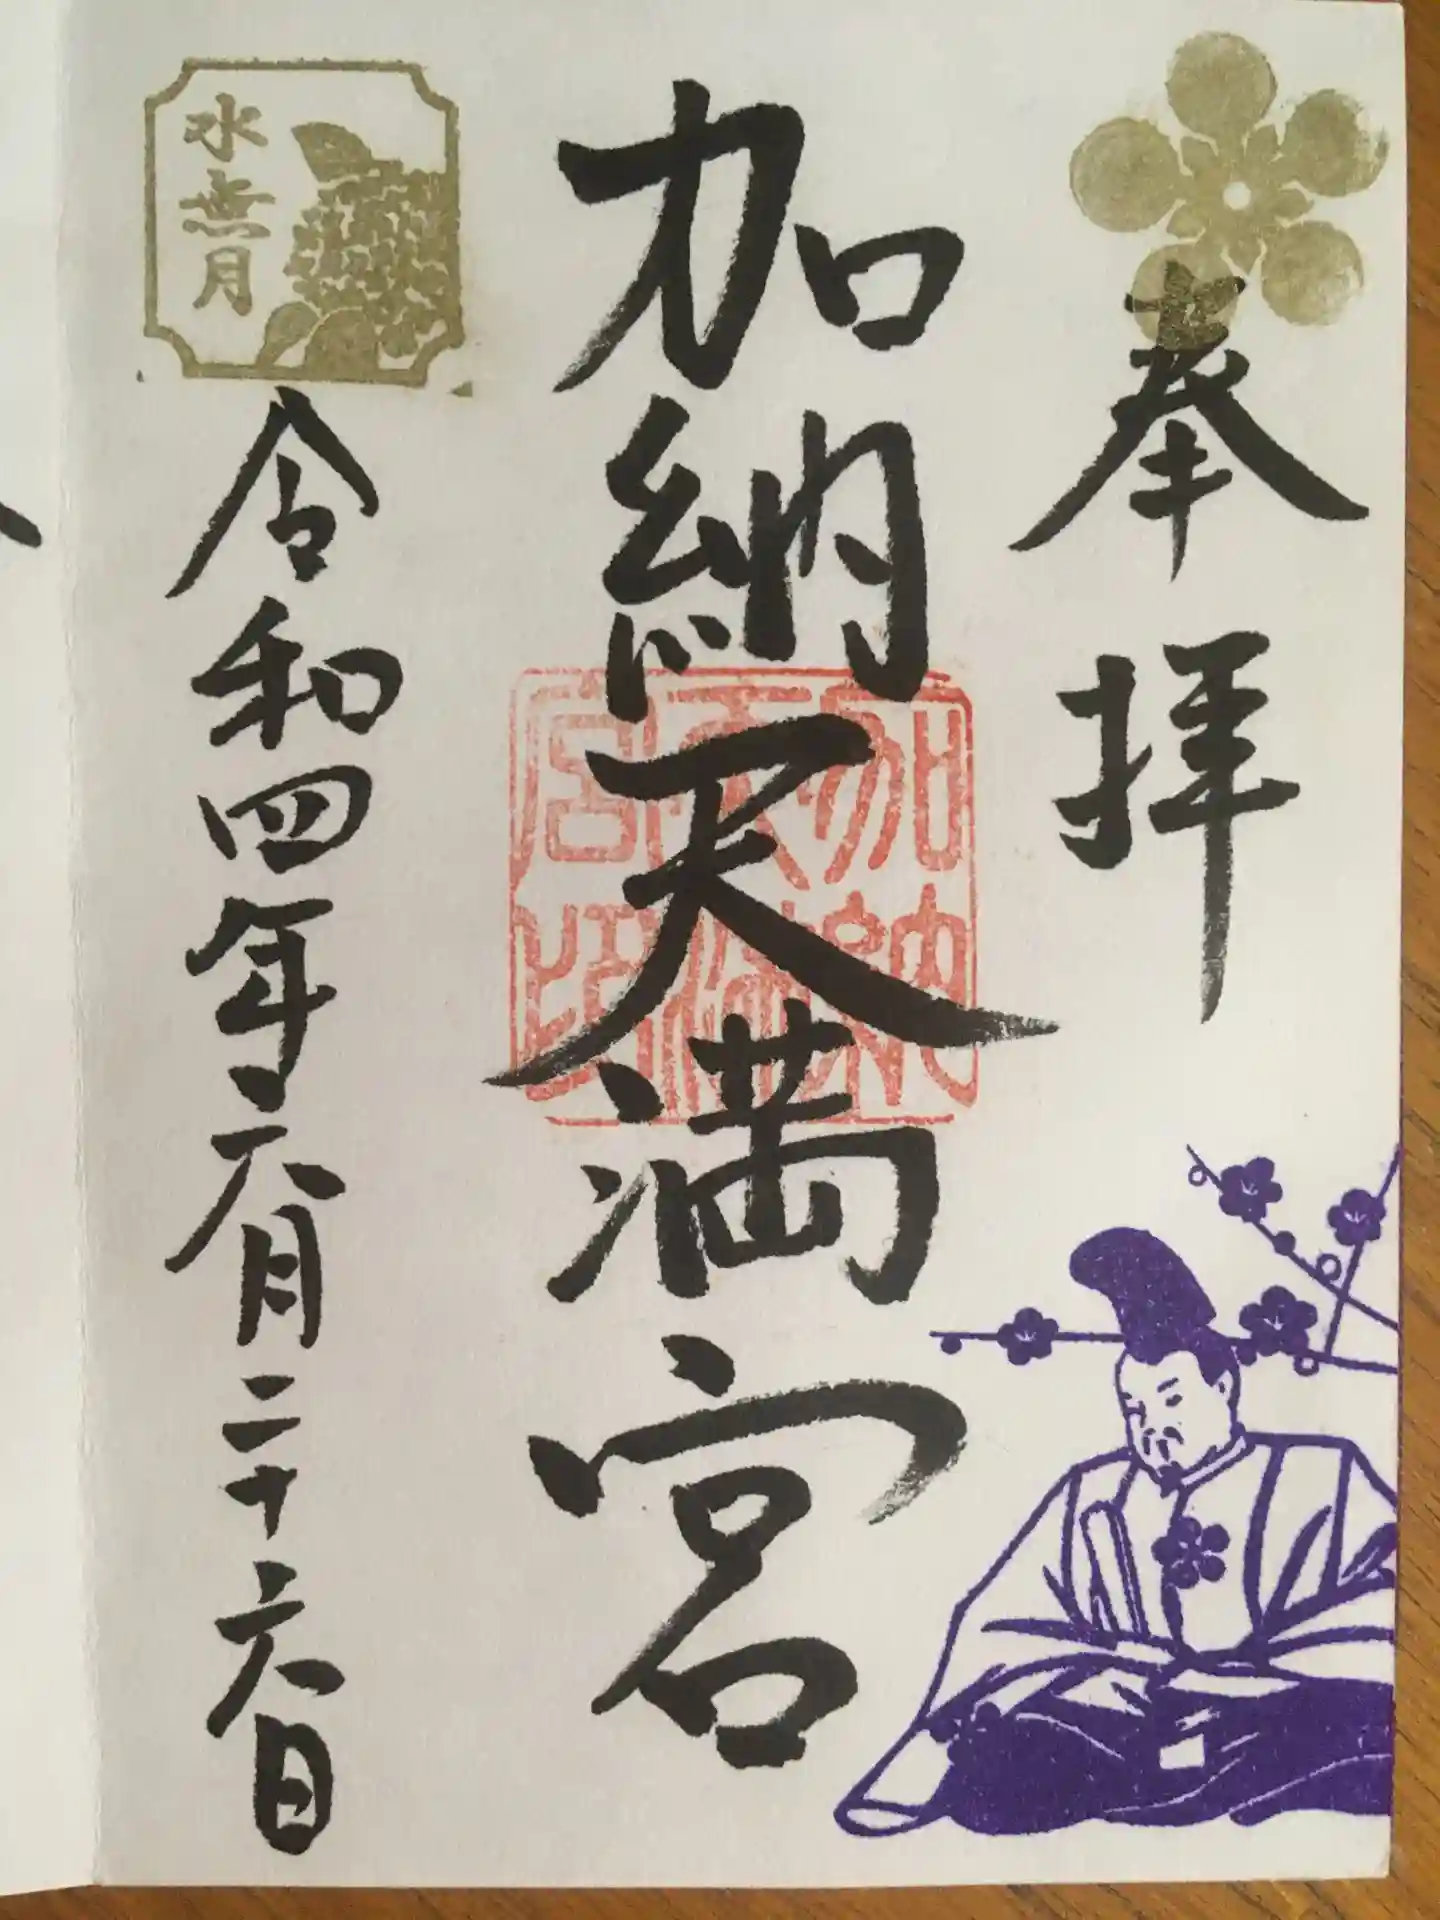 奉拝
加納天満宮
加納天満宮
水無月
令和四年六月二十六日